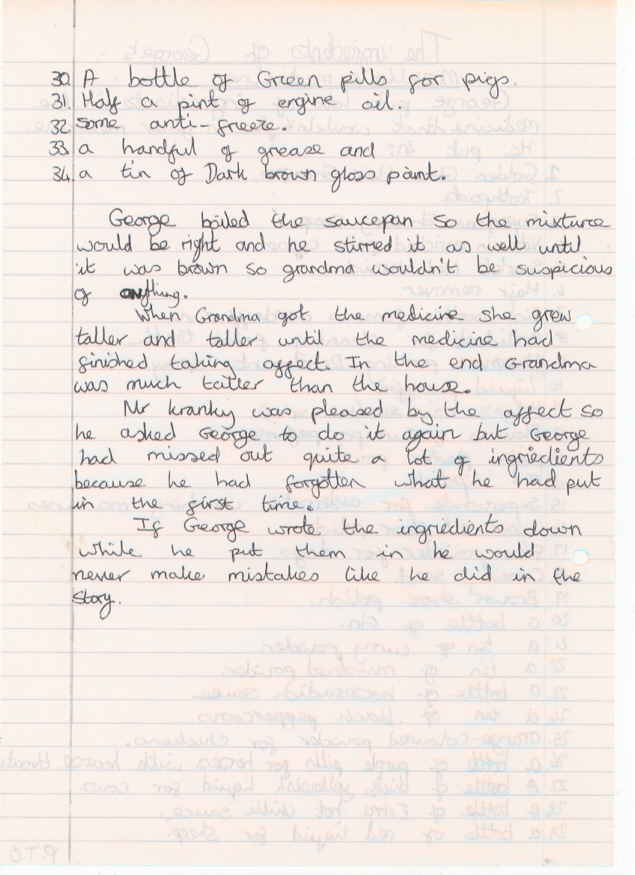 30. A bottle of Green pills for pigs.
31. Half a pint of engine oil.
32. some anti-freeze.
33. a handful of grease and
34. a tin of Dark brown gloss paint.
George boiled the saucepan so the mixture
would be right and he stirred it as well until
it was brown so grandma wouldn't be suspicious
of anything.
When Grandma got the medicine she grew
taller and taller until the medicine had
finished taking affect. In the end Grandma
was much taller than the house.
Mr kranky was pleased by the affect so
he asked George to do it again but George
had missed out quite a lot of ingriedients
because he had forgotten what he had put
in the first time.
If George wrote the ingriedients down
while he put them in he would
never make mistakes like he did in the
story.